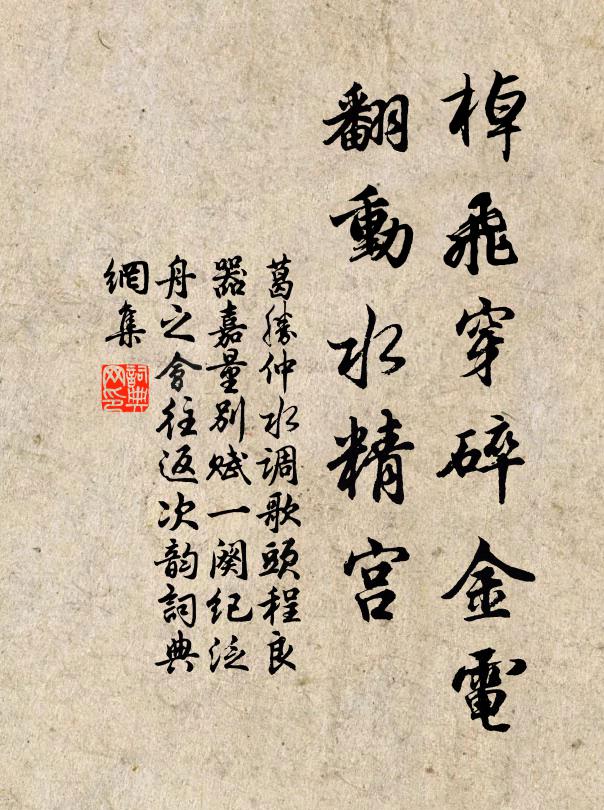 棹飛穿碎金電
翻動水精宮
葛勝仲水調歌頭程良
器嘉量別賦一闋紀泛
舟之會往返次韵詞典
網集
詞典
网印